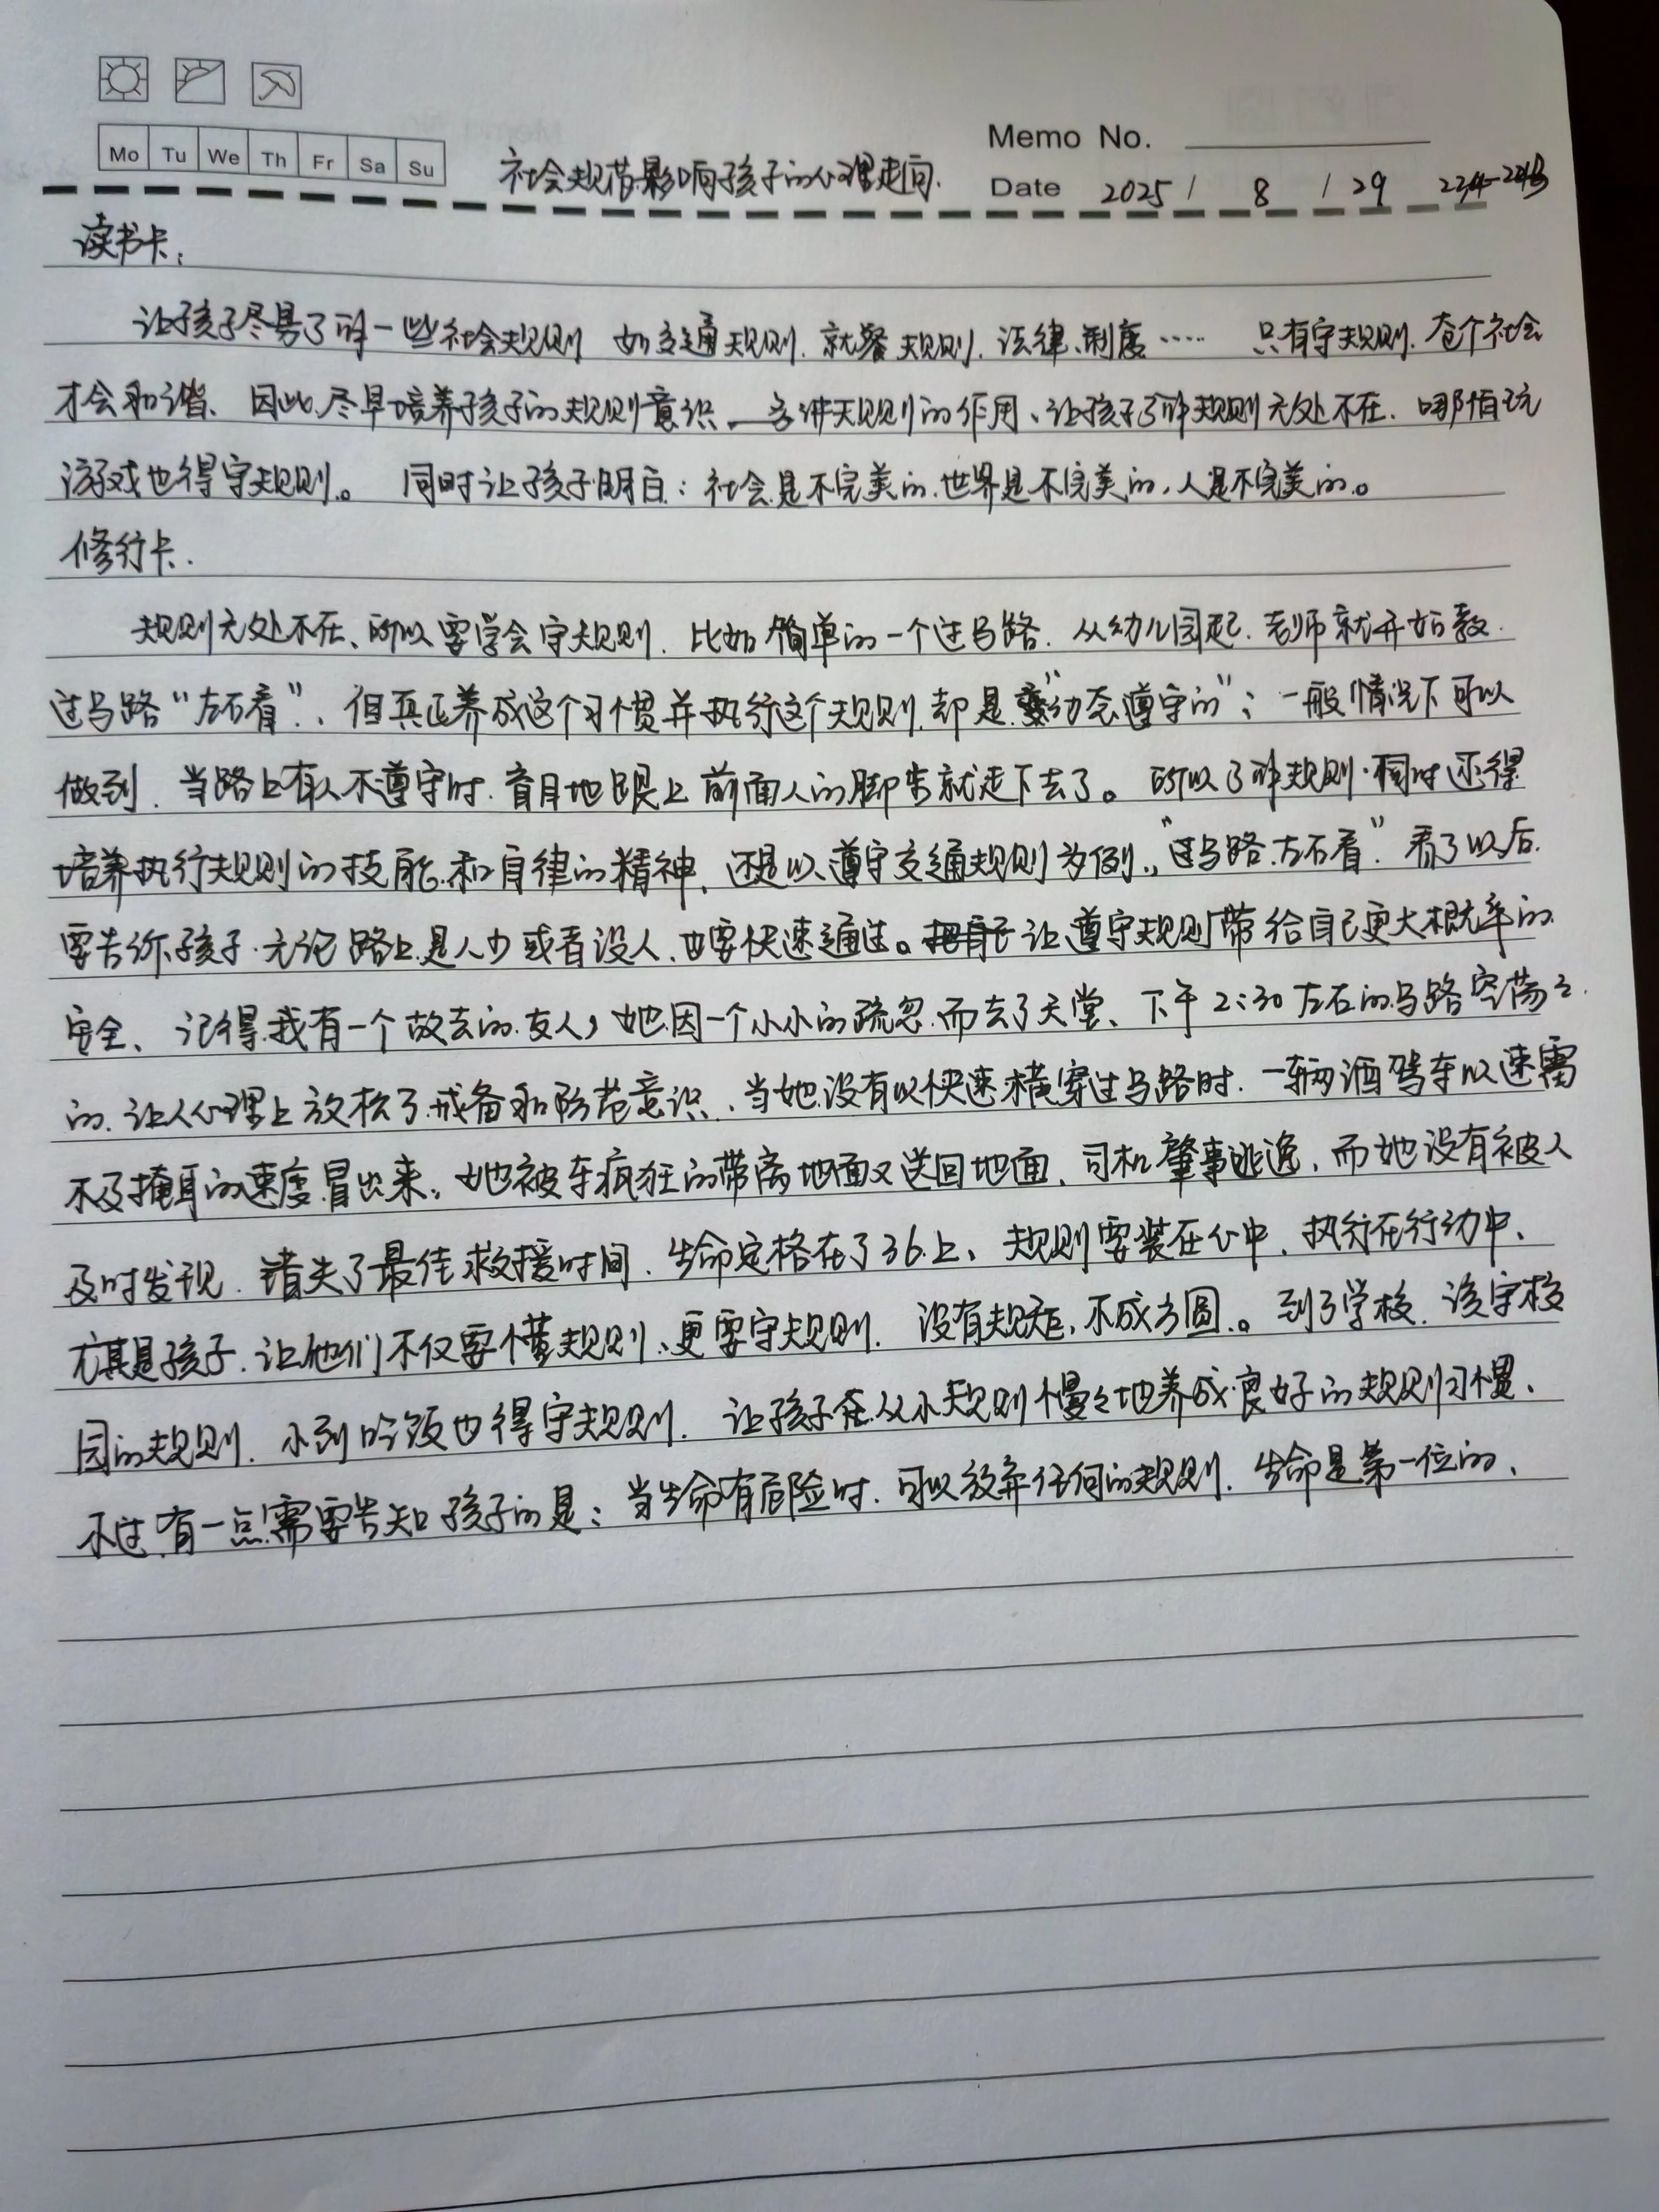 Mo Tu We Th Fr Sa Su
Memo No.
社会规范影响孩子的心理走向.
Date 2025 / 8 / 29
读书卡:
让孩子尽早了解一些社会规则 如交通规则.就餐规则.法律、制度…… 只有守规则.整个社会
才会和谐、因此.尽早培养孩子的规则意识 多讲规则的作用、让孩子了解规则无处不在.哪怕玩
游戏也得守规则。 同时让孩子明白:社会是不完美的.世界是不完美的,人是不完美的。
修行卡.
规则无处不在、所以要学会守规则.比如简单的一个过马路.从幼儿园起.老师就开始教.
过马路“左右看”、但真正养成这个习惯并执行这个规则.却是“动态遵守的”;一般情况下可以
做到.当路上有人不遵守时.盲目地跟上前面人的脚步就走下去了。所以了解规则·同时还得
培养执行规则的技能.和自律的精神.还是以遵守交通规则为例.,“过马路.左右看”.看了以后.
要告诉孩子·无论路上是人少或者没人.也要快速通过。让遵守规则带给自己更大概率的
安全、记得我有一个故去的友人,她因一个小小的疏忽.而去了天堂、下午2:30左右的马路空荡々
的.让人心理上放松了戒备和防范意识、当她没有以快速横穿过马路时.一辆酒驾车以速雷
不及掩耳的速度冒出来,她被车疯狂的带离地面又送回地面.司机肇事逃逸,而她没有被人
及时发现.错失了最佳救援时间.生命定格在了36上、规则要装在心中.执行在行动中、
尤其是孩子.让他们不仅要懂规则、更要守规则.没有规矩,不成方圆。到了学校.该守校
园的规则.小到吃饭也得守规则.让孩子在从小规则慢々地养成良好的规则习惯、
不过.有一点需要告知孩子的是:当生命有危险时.可以放弃任何的规则.生命是第一位的、